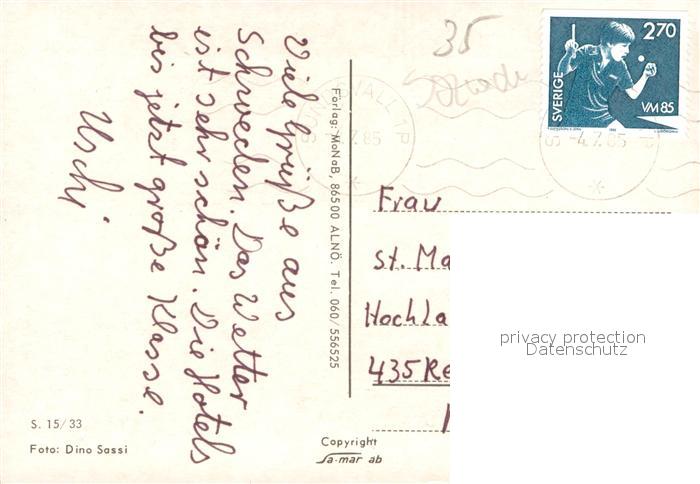 Viele Grüße aus
Schweden. Das Wetter
ist sehr schön. Die Hotels
bis jetzt große Klasse.
Uschi
S. 15/33
Foto: Dino Sassi
Förlag: MoNaB, 865 00 ALNÖ. Tel. 060/556525
Copyright
Sa-mar ab
35
SVERIGE
2.70
VM 85
4.7.85
4.7.85
Frau
St. Ma
Hochla
435 Re
privacy protection
Datenschutz